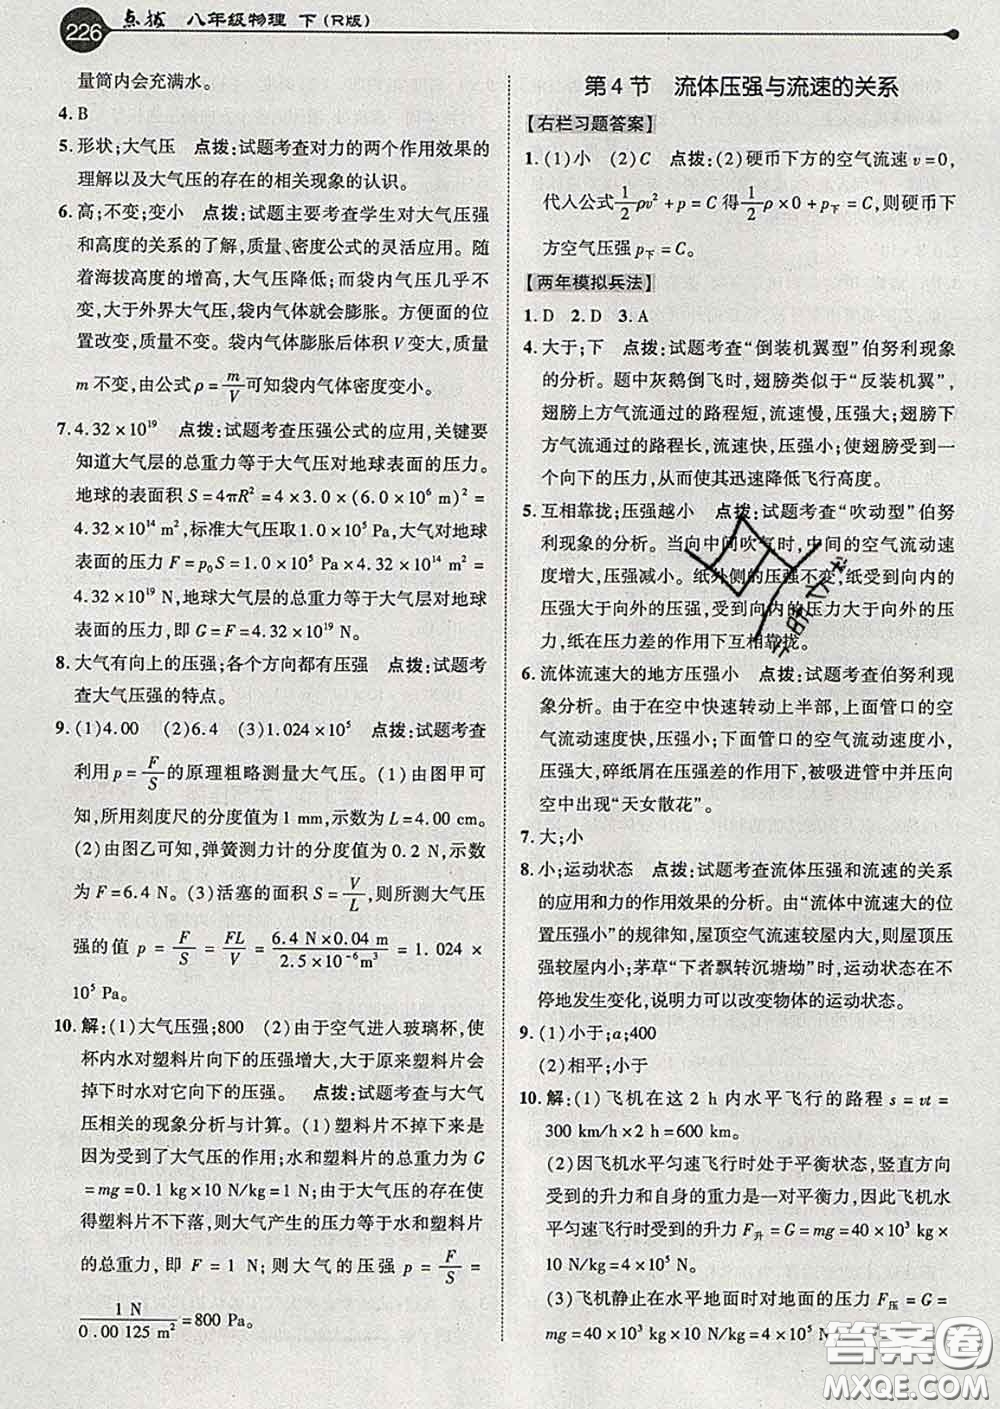 226 点拨 八年级物理 下(R版)
量筒内会充满水。
4. B
5. 形状;大气压 点拨:试题考查对力的两个作用效果的
理解以及大气压的存在的相关现象的认识。
6. 高;不变;变小 点拨:试题主要考查学生对大气压强
和高度的关系的了解,质量、密度公式的灵活应用。随
着海拔高度的增高,大气压降低;而袋内气压几乎不
变,大于外界大气压,袋内气体就会膨胀。方便面的位
置改变,质量不变。袋内气体膨胀后体积 V 变大,质量
m 不变,由公式 ρ = m/V 可知袋内气体密度变小。
7. 4.32×10¹⁹ 点拨:试题考查压强公式的应用,关键要
知道大气层的总重力等于大气压对地球表面的压力。
地球的表面积 S = 4πR² = 4×3.0×(6.0×10⁶ m)² =
4.32×10¹⁴ m²,标准大气压取 1.0×10⁵ Pa,大气对地球
表面的压力 F = p₀S = 1.0×10⁵ Pa×4.32×10¹⁴ m² =
4.32×10¹⁹ N,地球大气层的总重力等于大气对地球表
面的压力,即 G = F = 4.32×10¹⁹ N。
8. 大气有向上的压强;各个方向都有压强 点拨:试题考
查大气压强的特点。
9. (1)4.00 (2)6.4 (3)1.024×10⁵ 点拨:试题考查
利用 p = F/S 的原理粗略测量大气压。(1)由图甲可
知,所用刻度尺的分度值为 1 mm,示数为 L = 4.00 cm。
(2)由图乙可知,弹簧测力计的分度值为 0.2 N,示数
为 F = 6.4 N。(3)活塞的面积 S = V/L,则所测大气压
强的值 p = F/S = FL/V = 6.4 N×0.04 m/2.5×10⁻⁶m³ = 1.024 ×
10⁵ Pa。
10. 解:(1)大气压强;800 (2)由于空气进入玻璃杯,使
杯内水对塑料片向下的压强增大,大于原来塑料片会
掉下时水对它向下的压强。 点拨:试题考查与大气
压相关的现象分析与计算。(1)塑料片不掉下来是
因为受到了大气压的作用;水和塑料片的总重力为 G
= mg = 0.1 kg×10 N/kg = 1 N;由于大气压的存在使
得塑料片不下落,则大气产生的压力等于水和塑料片
的总重力,即 F = 1 N;则大气的压强 p = F/S =
1 N/0.00 125 m² = 800 Pa。
第 4 节 流体压强与流速的关系
【右栏习题答案】
1. (1)小 (2)C 点拨:(2)硬币下方的空气流速 v = 0,
代入公式 1/2ρv² + p = C 得 1/2ρ×0 + p下 = C,则硬币下
方空气压强 p下 = C。
【两年模拟兵法】
1. D 2. D 3. A
4. 大于;下 点拨:试题考查“倒装机翼型”伯努利现象
的分析。题中灰鹅倒飞时,翅膀类似于“反装机翼”,
翅膀上方气流通过的路程短,流速慢,压强大;翅膀下
方气流通过的路程长,流速快,压强小;使翅膀受到一
个向下的压力,从而使其迅速降低飞行高度。
5. 互相靠拢;压强越小 点拨:试题考查“吹动型”伯努
利现象的分析。当向中间吹气时,中间的空气流动速
度增大,压强减小。纸外侧的压强不变,纸受到向内的
压强大于向外的压强,受到向内的压力大于向外的压
力,纸在压力差的作用下互相靠拢。
6. 流体流速大的地方压强小 点拨:试题考查伯努利现
象分析。由于在空中快速转动上半部,上面管口的空
气流动速度快,压强小;下面管口的空气流动速度小,
压强大,碎纸屑在压强差的作用下,被吸进管中并压向
空中出现“天女散花”。
7. 大;小
8. 小;运动状态 点拨:试题考查流体压强和流速的关系
的应用和力的作用效果的分析。由“流体中流速大的位
置压强小”的规律知,屋顶空气流速较屋内大,则屋顶压
强较屋内小;茅草“下者飘转沉塘坳”时,运动状态在不
停地发生变化,说明力可以改变物体的运动状态。
9. (1)小于;a;400
(2)相平;小于
10. 解:(1)飞机在这 2 h 内水平飞行的路程 s = vt =
300 km/h×2 h = 600 km。
(2)因飞机水平匀速飞行时处于平衡状态,竖直方向
受到的升力和自身的重力是一对平衡力,因此飞机水
平匀速飞行时受到的升力 F升 = G = mg = 40×10³ kg×
10 N/kg = 4×10⁵ N。
(3)飞机静止在水平地面时对地面的压力 F压 = G =
mg = 40×10³ kg×10 N/kg = 4×10⁵ N。
答案圈
MXQE.COM